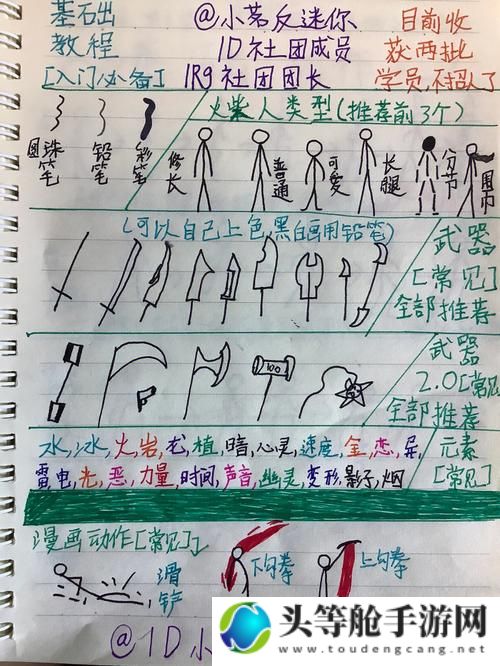 基石出
教程
[入门必备]
@小茗反迷你
1D社团成员
1R9社团团长
目前收
获两批
学员,不带队了
火柴人类型(推荐前3个)
圆珠笔
铅笔
彩笔
修长
普通
可爱
长腿
分节
围巾
(可以自己上色,黑白画用铅笔)
武器
[常见]
全部推荐
100
武器
2.0[常见]
全部推荐
水,冰,火,岩,龙,植,暗,心灵,速度,金,恋,
雷电,光,恶,力量,时间,声音,幽灵,变形,影子,烟
元素
[常见]
漫画动作[常见]
滑铲
下勾拳
上勾拳
@1D小
头等舱手游网
www.toudengcang.net